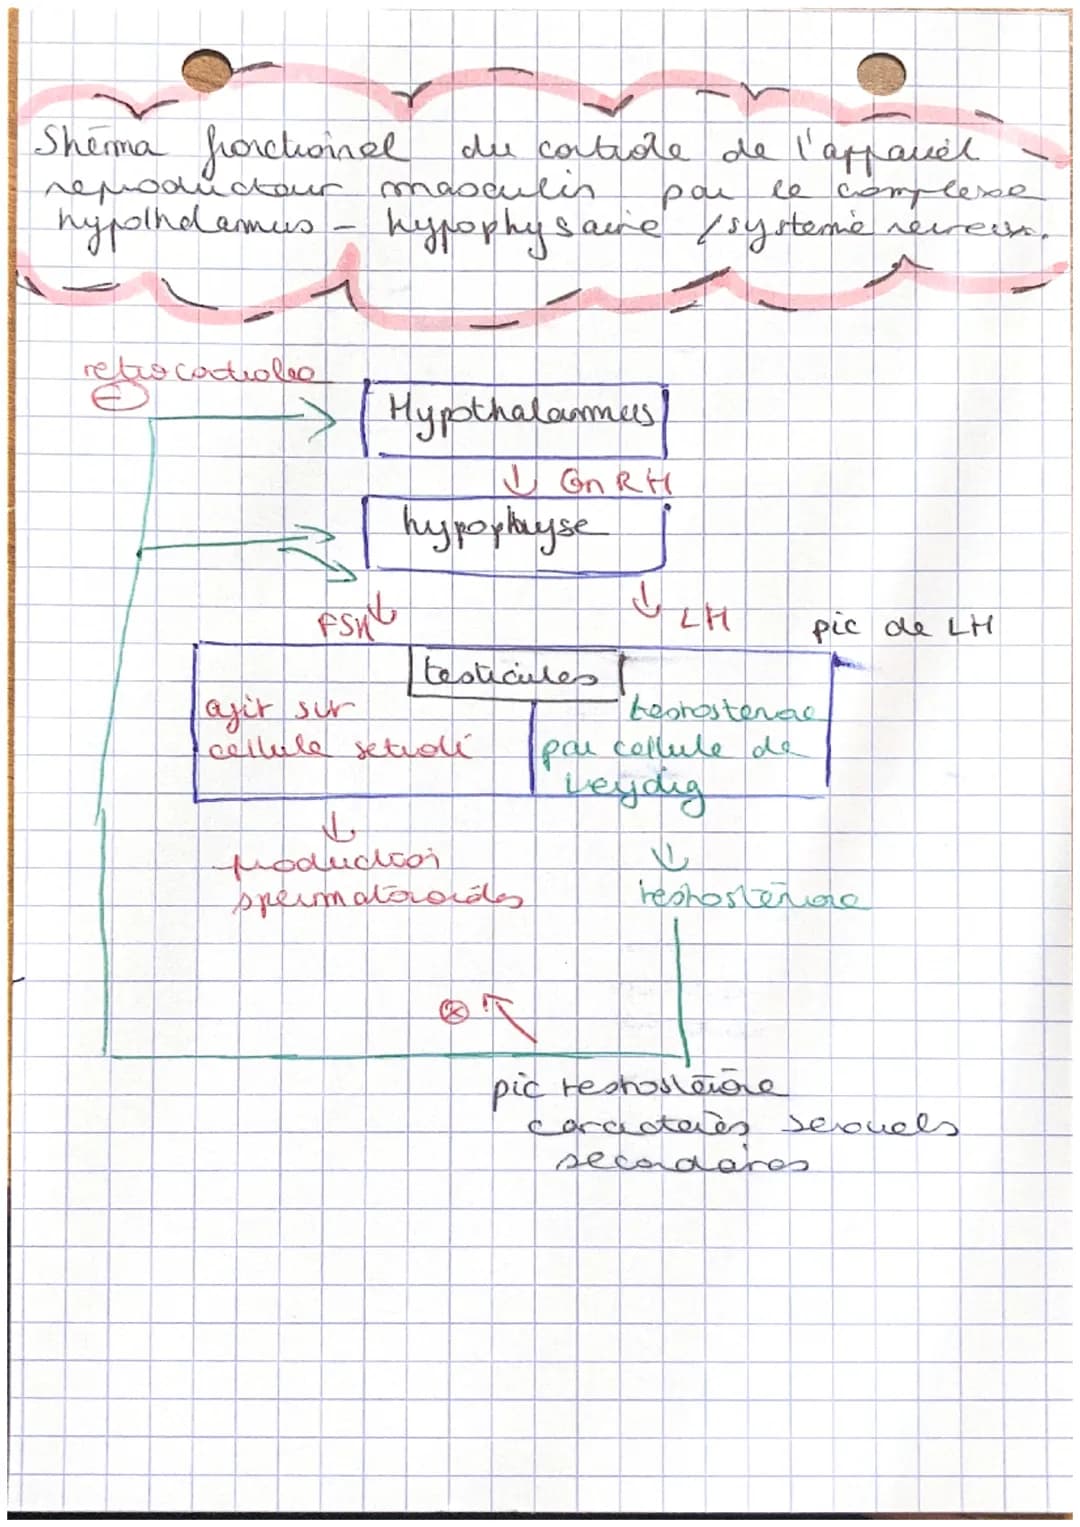 Shéma fonctionnel du contrôle de l'appareil
reproducteur masculin par le complexe
hypothalamus - hypophysaire / système nerveux.
retrocontroles
-
Hypothalammus
↓ GnRH
hypophyse
FSH ↓
↓ LH
pic de LH
testicules
agir sur
cellule setroli
testosterone
par cellule de
Leydig
↓
production
spermatozoïdes
↓
testosterone
pic testosterone
caractères sexuels
secondaires